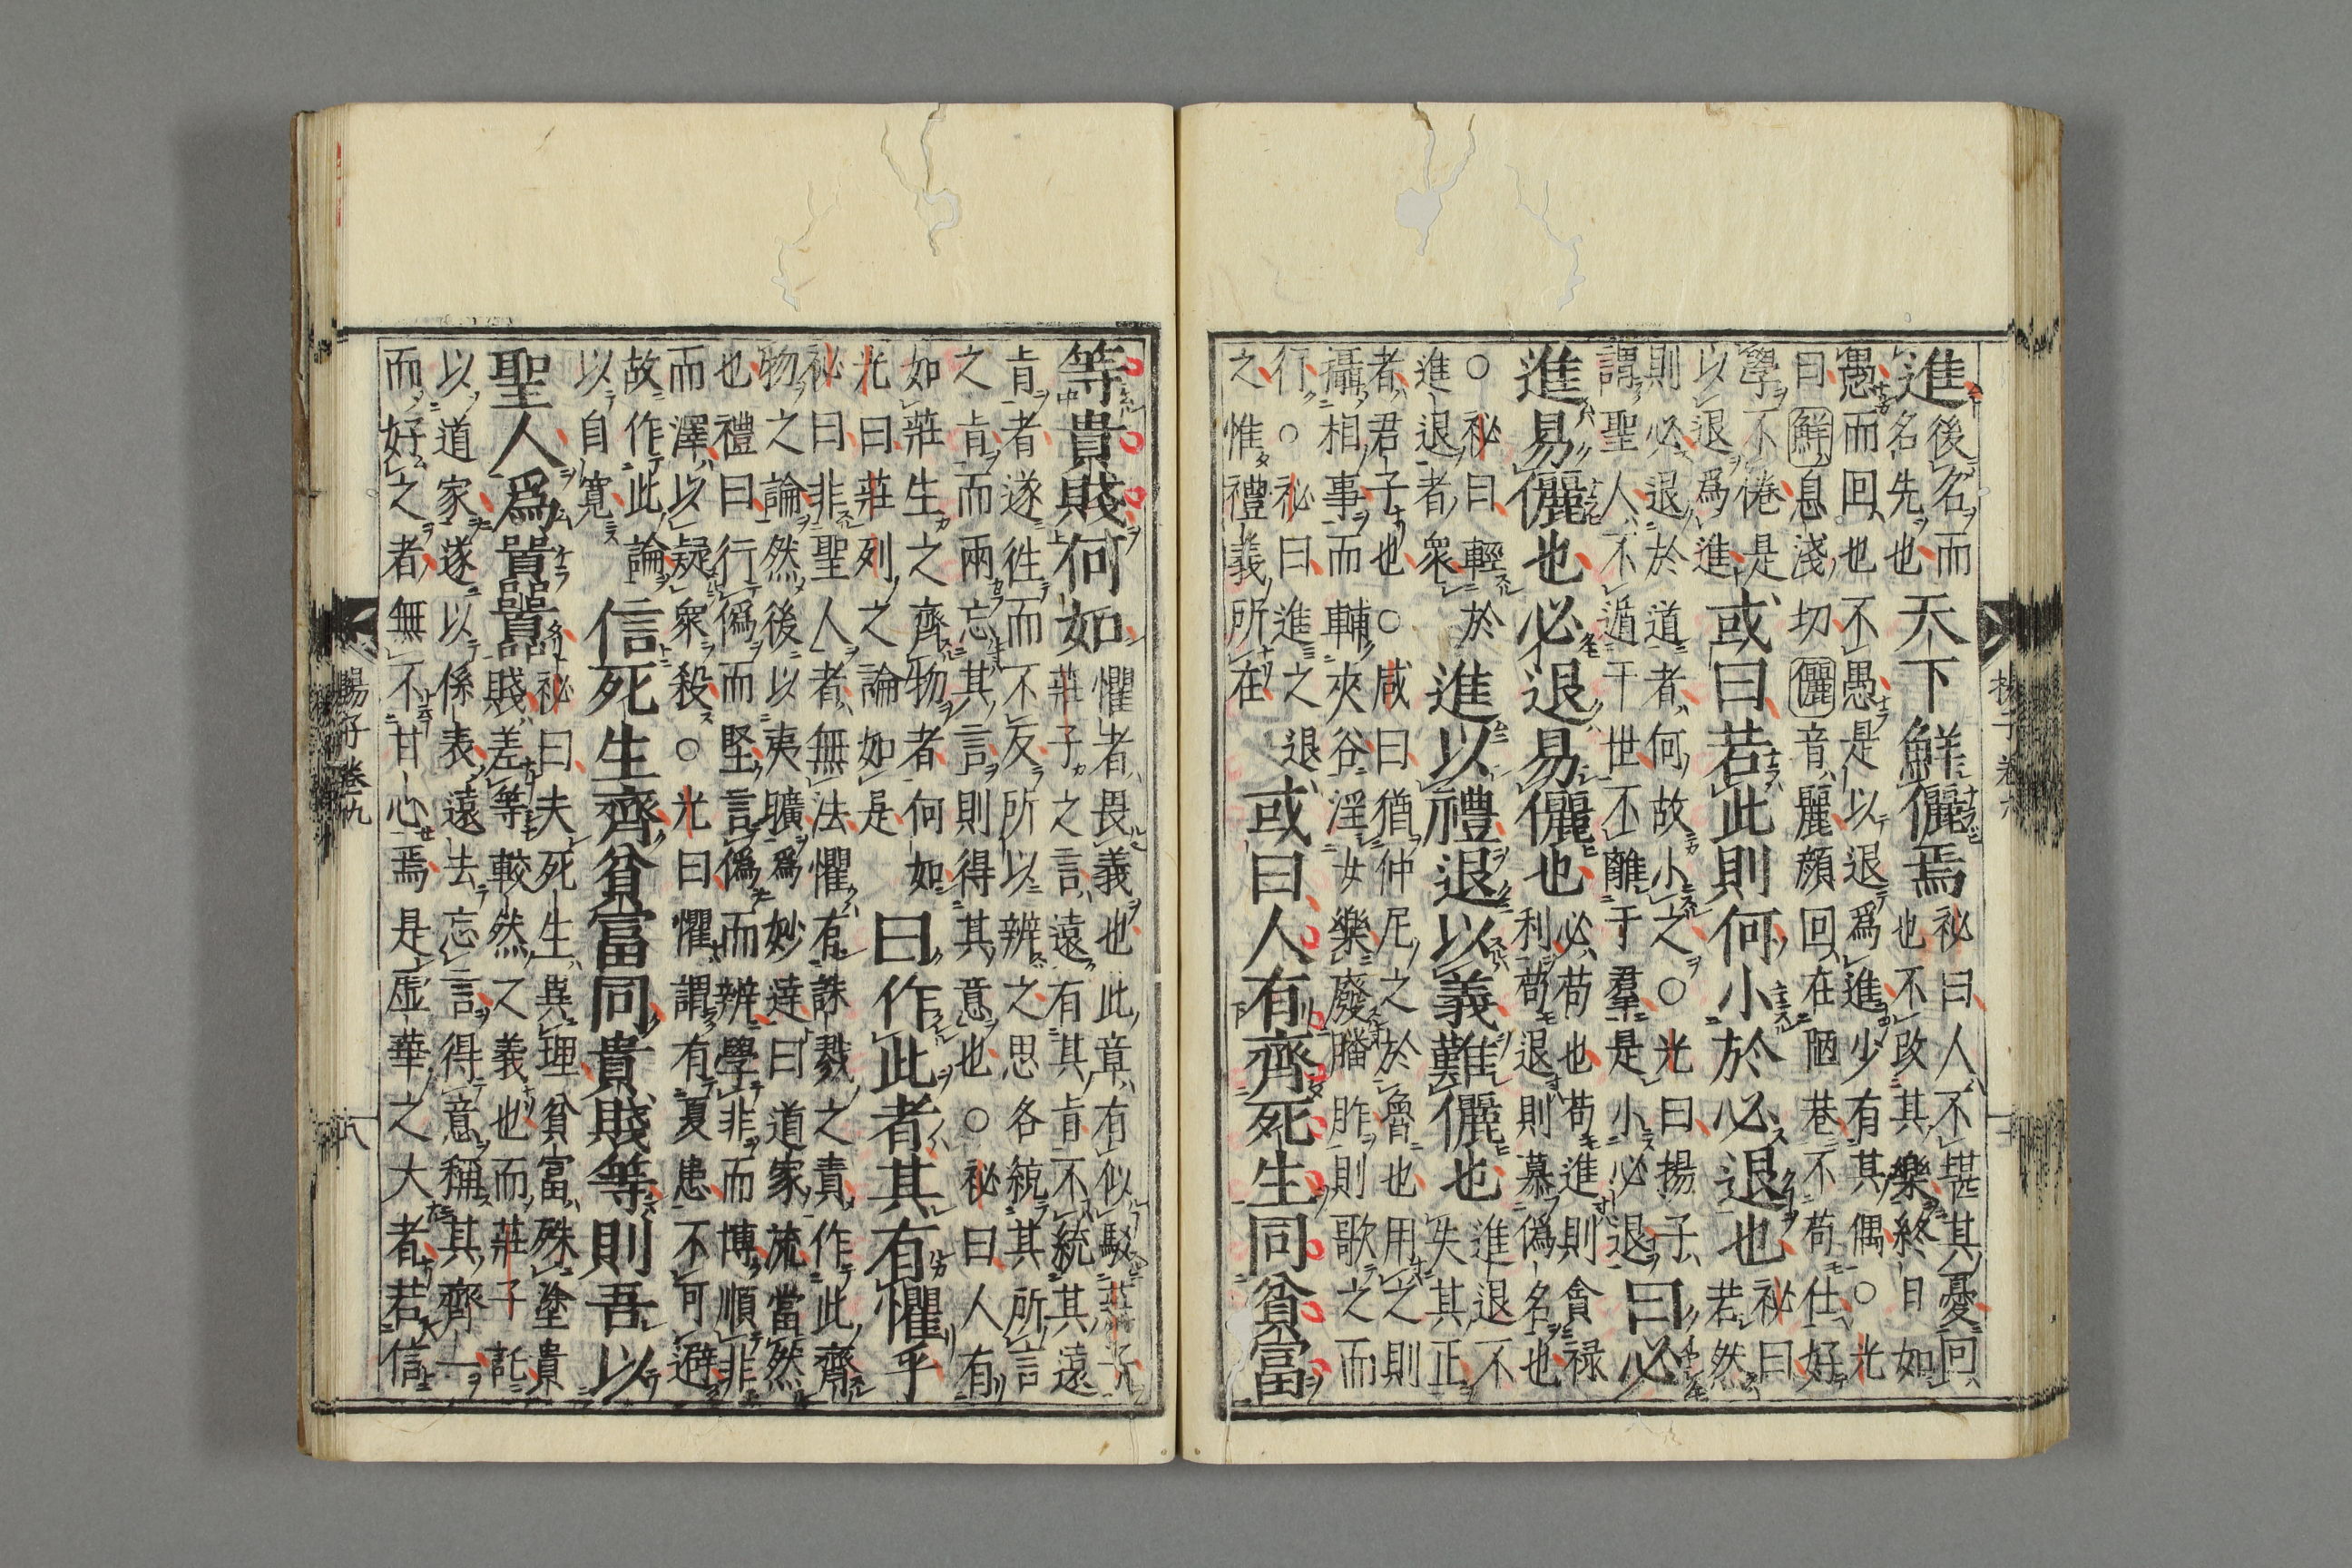 進
後名而
名先也
天下鮮儷焉
秘曰人不堪其憂回
也不改其樂終日如
愚而回也不愚是以退爲進少有其偶○光
曰鮮息淺切儷音麗顏回在陋巷不苟仕好
學不倦是
以退爲進
或曰若此則何小於必退也
秘曰
若然
則必退於道者何故小之○光曰揚子
謂聖人不遁于世不離于羣是小必退
曰必
進易儷也必退易儷也
必苟也苟進則貪禄
利苟退則慕偽名也
○秘曰輕於
進退者衆
進以禮退以義難儷也
進退不
失其正
者君子也○咸曰猶仲尼之於魯也用之則
攝相事而輔夾谷淫女樂廢膰胙則歌之而
行○秘曰進之退
之惟禮義所在
或曰人有齊死生同貧富
等貴賤何如
懼者畏義也此章有似駁莊子
莊子之言遠有其旨不統其遠
旨者遂往而不反所以辨之思各統其所言
之旨而兩忘其言則得其意也○秘曰人有
如莊生之齊物者何如
光曰莊列之論如是
曰作此者其有懼乎
秘曰非聖人者無法懼有誅戮之責作此齊
物之論然後以夷曠爲妙達曰道家流當然
也禮曰行偽而堅言偽而辨學非而博順非
而澤以疑衆殺○光曰懼謂有憂患不可避
故作此論
以自寛
信死生齊貧富同貴賤等則吾以
聖人爲囂囂
秘曰夫死生異理貧富殊塗貴
賤差等較然之義也而莊子託
以道家遂以係表遠去忘言得意稱其齊一
而好之者無不甘心焉是虚華之大者若信
揚子卷九
八